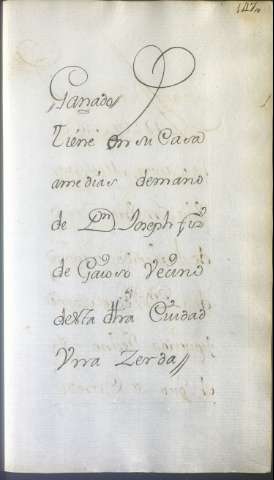 147
Ganado//
Tiene en su Casa
amedias demano
de Dn Joseph frz
de Gaioso Vecino
desta dha Ciudad
Vna Zerda//